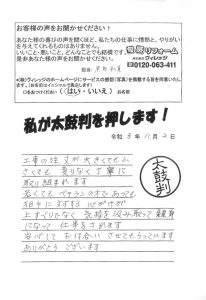 お客様の声をお聞かせください！
あなた様の喜びの声を聞くほど、私たちの仕事に情熱と、やりがいを与えてくれるものはありません。
いいこと・悪いこと、どんなことでも結構です。
是非あなた様の声をお聞かせください。
屋根リフォーム
株式会社ヴィレッジ
0120-063-411
＊(株)ヴィレッジのホームページにサービスの感想(写真)を掲載する旨を同意いたします。(お名前はイニシャルで表示します)
○をおつけください((はい・いいえ) お名前
私が太鼓判を押します！
令和3年11月2日
太鼓判
工事の注文が大きくても小
さくても 変りなく丁寧に
取り組まれます
若くても ベテランの方であっても
相手に対する心がけが
上すべりなく 気持を汲み取って親身
になって 仕事をされます
安心して お付合い させてもらっています
ありがとう ございます